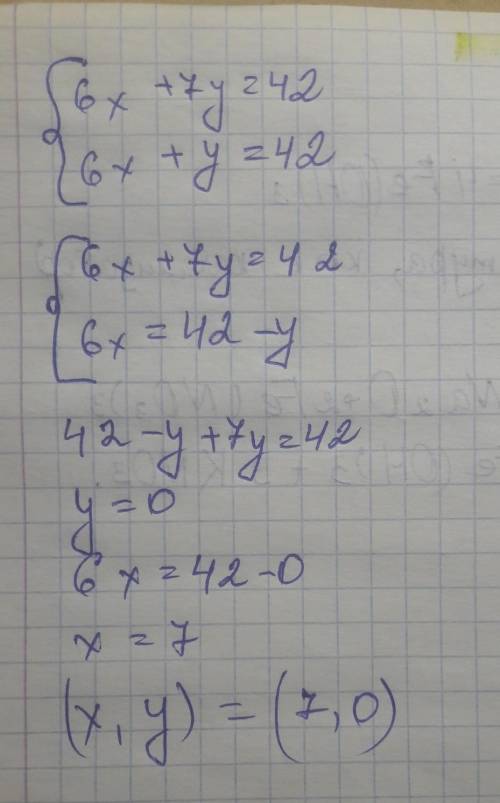 6x + 7y = 42
6x + y = 42
6x + 7y = 42
6x = 42 - y
42 - y + 7y = 42
y = 0
6x = 42 - 0
x = 7
(x, y) = (7, 0)